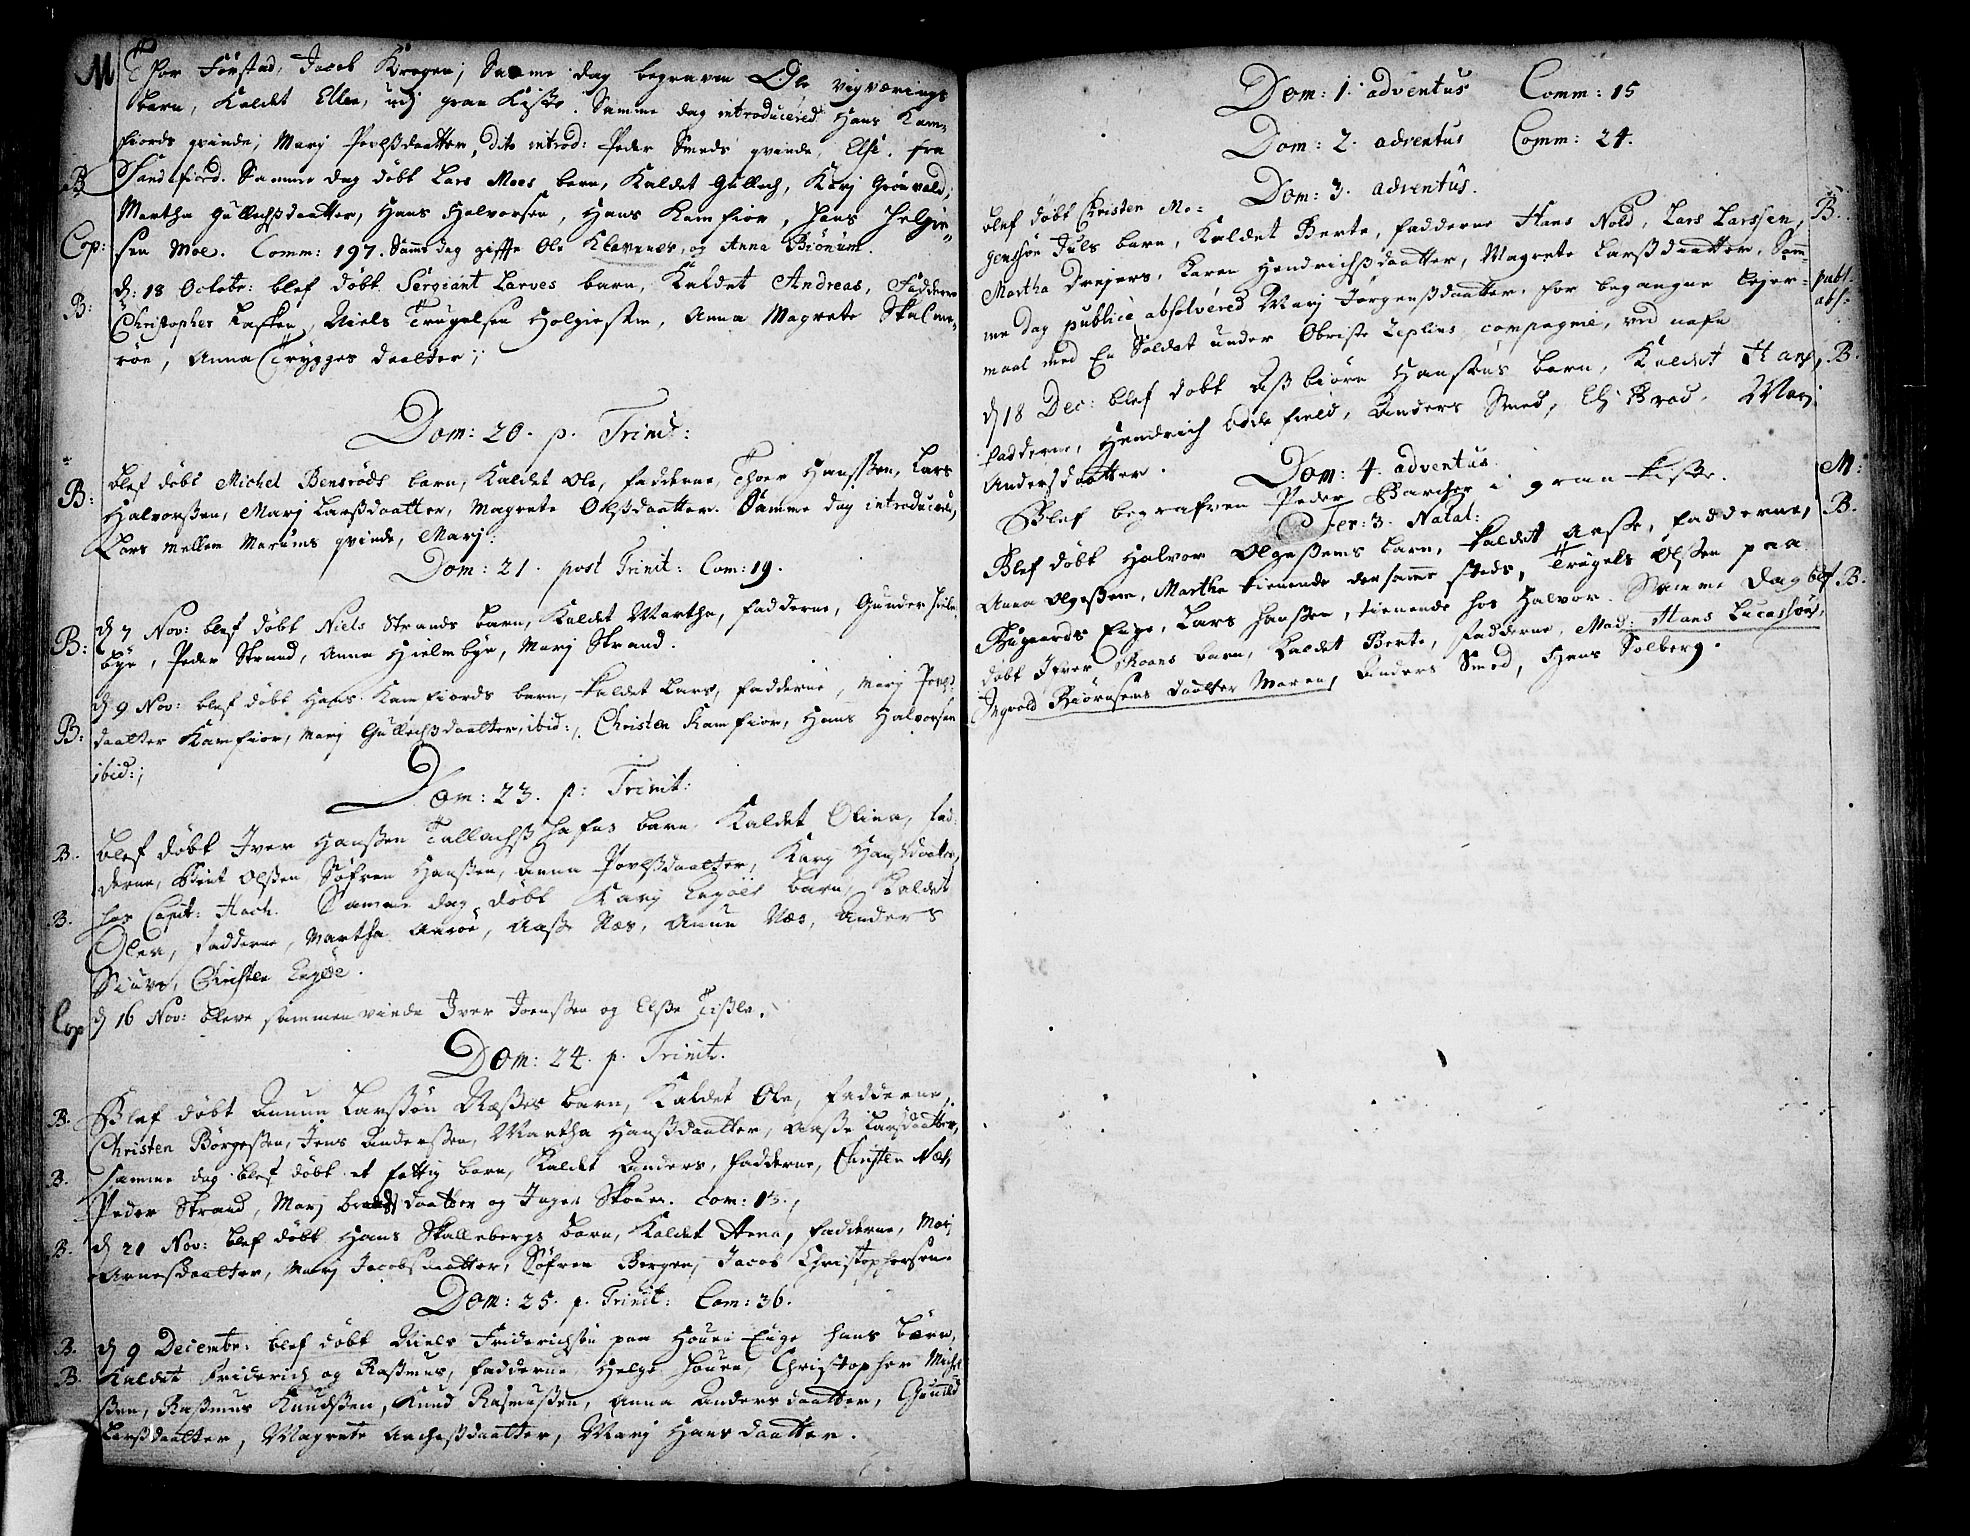 M Thor Førstad, Jacob Krogen; Samme dag begraven Ole vigværings
barn, Kaldet Ellen, udj gran Kiste. Samme dag introducered Hans Kam-
fiords qvinde, Marj Povelsdaatter, dito introd: Peder Smeds qvinde, Else, fra
B Sandefiord. Samme dag døbt Lars Moes barn, Kaldet Gullech, Karj Grønvold,
Martha Gullechsdaatter, Hans Halvorsen, Hans Kamfior, Hans Helgie-
Cop: sen Moe. Comm: 197. Samme dag giffte Ole Klavenes, og Anna Biønnum.
B: d: 18 Octobr: blef døbt Sergiant Larves barn, Kaldet Andreas, Faddere
Christopher Kaffen, Niels Trugelsen Helgiesten, Anna Magrete Skalme-
röe, Anna Trygges daatter;
Dom: 20. p. Trinit:
B: blef døbt Michel Bensrøds barn, Kaldet Ole, fadderne, Thoer Hanssen, Lars
Halvorssen, Marj Larssdaatter, Magrete Olssdaatter. Samme dag introducered,
Lars mellem Marums qvinde, Marj:
Dom: 21. post Trinit: Com: 19.
B: d 7 Nov: blef døbt Niels Strands barn, Kaldet Martha, fadderne, Gunder Hielm
bye, Peder Strand, Anna Hielmbye, Marj Strand.
d 9 Nov: blef døbt Hans Kamfiords barn, kaldet Lars, fadderne, Marj Povels
B: daatter Kamfior, Marj Gullechssdaatter, ibid:, Christen Kamfior, Hans Halvorsen
ibid:;
Dom: 23. p: Trinit:
B. blef døbt Iver Hanssen Tallachss hafns barn Kaldet Olina, fad-
derne, Bint Olssen Søfren Hanssen, Anna Povelssdaatter, Karj Hanssdaatter,
B. hos Capit: Hach. Samme dag døbt Karj barn, Kaldet
Olea, fadderne, Martha Aarøe, Aasse Næs, Amun Næs, Anders
Christen
Cop d 16 Nov: bleve sammenviede Iver Joenssen og Else
Dom: 24. p. Trinit.
B. Blef døbt Amun Larssøn Næsses barn, Kaldet Ole, Fadderne,
Christen Børgessen, Jens Anderssen, Martha Hanssdaatter, Aasse Larsdaatter,
B. samme dag blef døbt et fattig barn, Kaldet Anders, fadderne, Christen Næs,
Peder Strand, Marj daatter og Inger Skouen. Com: 13.
B. d 21 Nov: blef døbt Hans Skallebergs barn, Kaldet Anna, fadderne, Marj
Arnesdaatter, Marj Jacobsdaatter, Søfren Bergen, Jacob Christophersen.
Dom: 25. p. Trinit: Com: 36.
B. d 9 Decembr: blef døbt Niels Friderichsen paa Houri Eige hans børn,
B. Kaldet Friderich og Rasmus, fadderne, Helge Houen, Christopher Michel
ssen, Rasmus Knudssen, Knud Rasmussen, Anna Andersdaatter, Gunild
Larssdaatter, Magrete Archessdaatter, Marj Hansdaatter.
Dom: 1. adventus Comm: 15
Dom: 2. adventus Comm: 24.
Dom: 3. adventus.
blef døbt Christen Mo-
genssøn Juls barn, Kaldet Berte, fadderne Hans Nold, Lars Larssen, B.
Martha Drejers, Karen Hendrichssdaatter, Magrete Larssdaatter. Sam-
me dag publicè absolvered Marj Jørgenssdaatter, for begangne Lejer- publ:
maal med En Soldat under Obriste Zeplins compagnie, ved nafn abs:
d 18 Dec: blef døbt Assbiørn Hansens barn, Kaldet Hans, B.
fadderne, Hendrich Oddefield, Anders Smed, Els Brad, Marj
Andersdaatter.
Dom: 4. adventus.
Blef begrafven Peder Barcher i gran kiste. M:
Fer: 3. Natal:
Blef døbt Halvor Olgessens barn, kaldet Aasse, fadderne, B.
Anna Olgessen, Martha tienende dersamme steds, Trugels Olssen paa
Bugaards Eige, Lars Hanssen, tienende hos Halvor. Samme dag blef B.
døbt Iver Moens barn, kaldet Berte, fadderne, Mad: Hans Lucassøns,
Ingvold Biørnsens daatter Maren, Anders Smed, Hans Solberg.